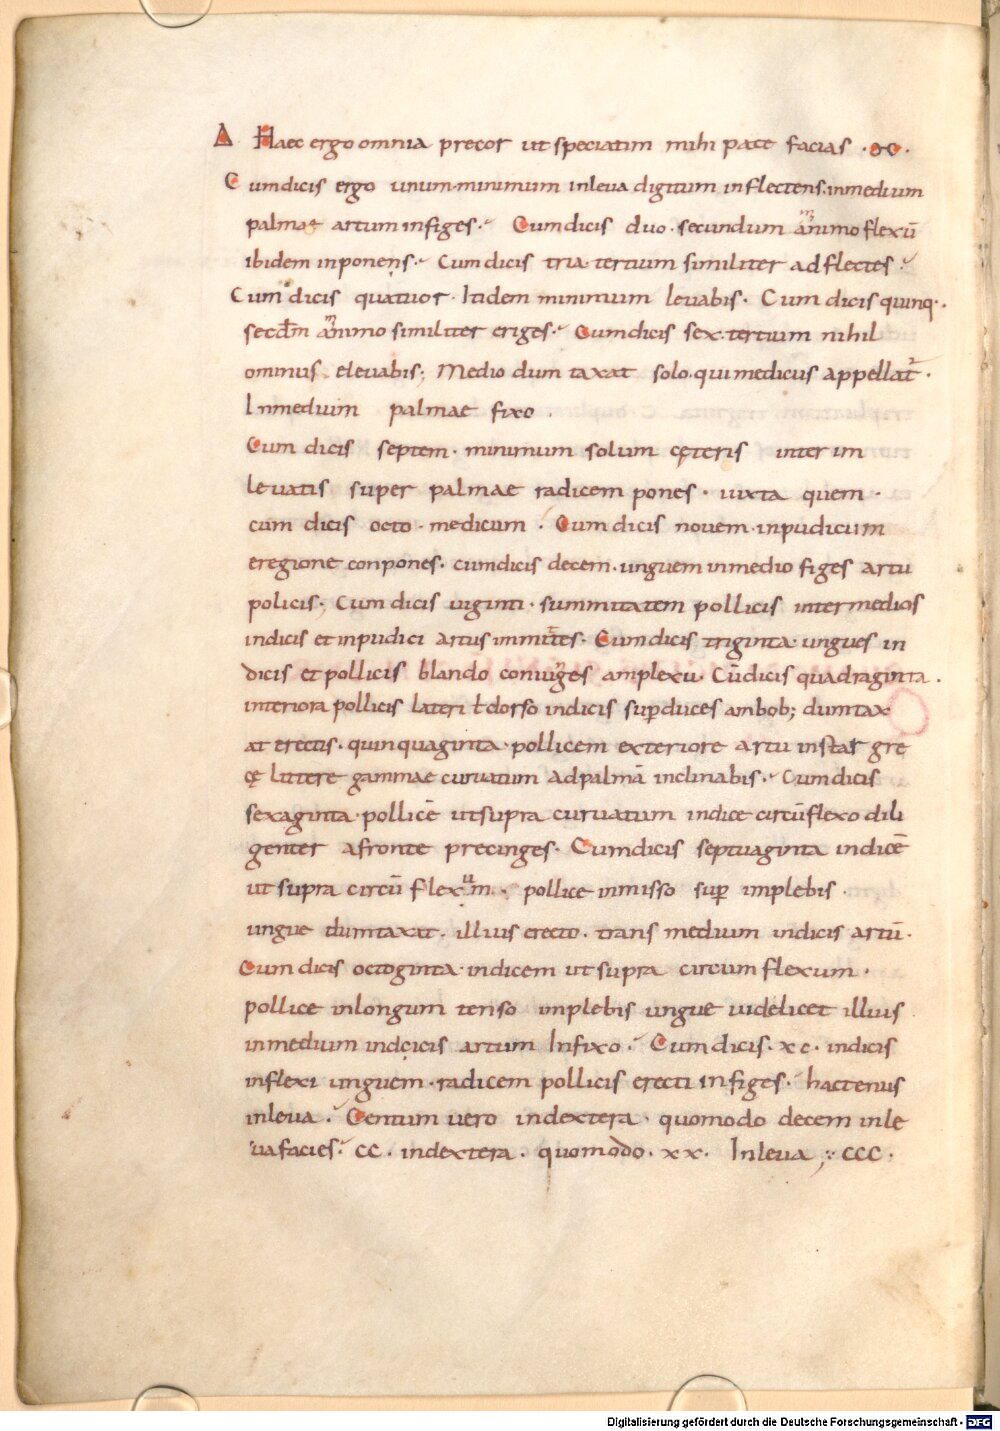 Δ Haec ergo omnia precor ut speciatim mihi pate facias ·
Cum dicis ergo unum · minimum inleva digitum inflectens · inmedium
palmae artum infiges · Cum dicis duo · secundum animo flexū
ibidem inponens · Cum dicis tria tertium similiter adflectes ·
Cum dicis quatuor · Itidem minimum levabis · Cum dicis quinq· ·
secdm animo similiter eriges · Cum dicis sex · tertium nihil
ominus elevabis ; Medio dum taxat solo · qui medicus appellat ·
Inmedium palmae fixo ·
Cum dicis septem · minimum solum cęteris interim
levatis super palmae radicem pones · iuxta quem ·
cum dicis octo · medicum · Cum dicis novem · inpudicum
eregione conpones · cum dicis decem · unguem inmedio figes artu
policis ; Cum dicis viginti · summitatem pollicis inter medios
indicis et inpudici artus immittes · Cum dicis triginta · ungues in
dicis et pollicis blando coniunges amplexu · Cū dicis quadraginta ·
interiora pollicis lateri ł dorso indicis supduces ambob; dumtax
at erectis · quinquaginta · pollicem exteriore artu instar gre
cę littere gammae curvatum ad palmā inclinabis · Cum dicis
sexaginta · pollicē ut supra curvatum indice circūflexo dili
genter a fronte precinges · Cum dicis septuaginta indicē
ut supra circū flexum · pollice inmisso sup implebis ·
ungue dumtaxat · illius erecto · trans medium indicis artū ·
Cum dicis octoginta · indicem ut supra circum flexum ·
pollice inlongum tenso implebis ungue videlicet illius
inmedium indcicis artum Infixo · Cum dicis · xc · indicis
inflexi unguem · radicem pollicis erecti infiges · hactenus
inleva · Centum vero indextera · quomodo decem inle
va facies · CC · indextera · quomodo · xx · Inleva ; CCC ·
Digitalisierung gefördert durch die Deutsche Forschungsgemeinschaft - DFG